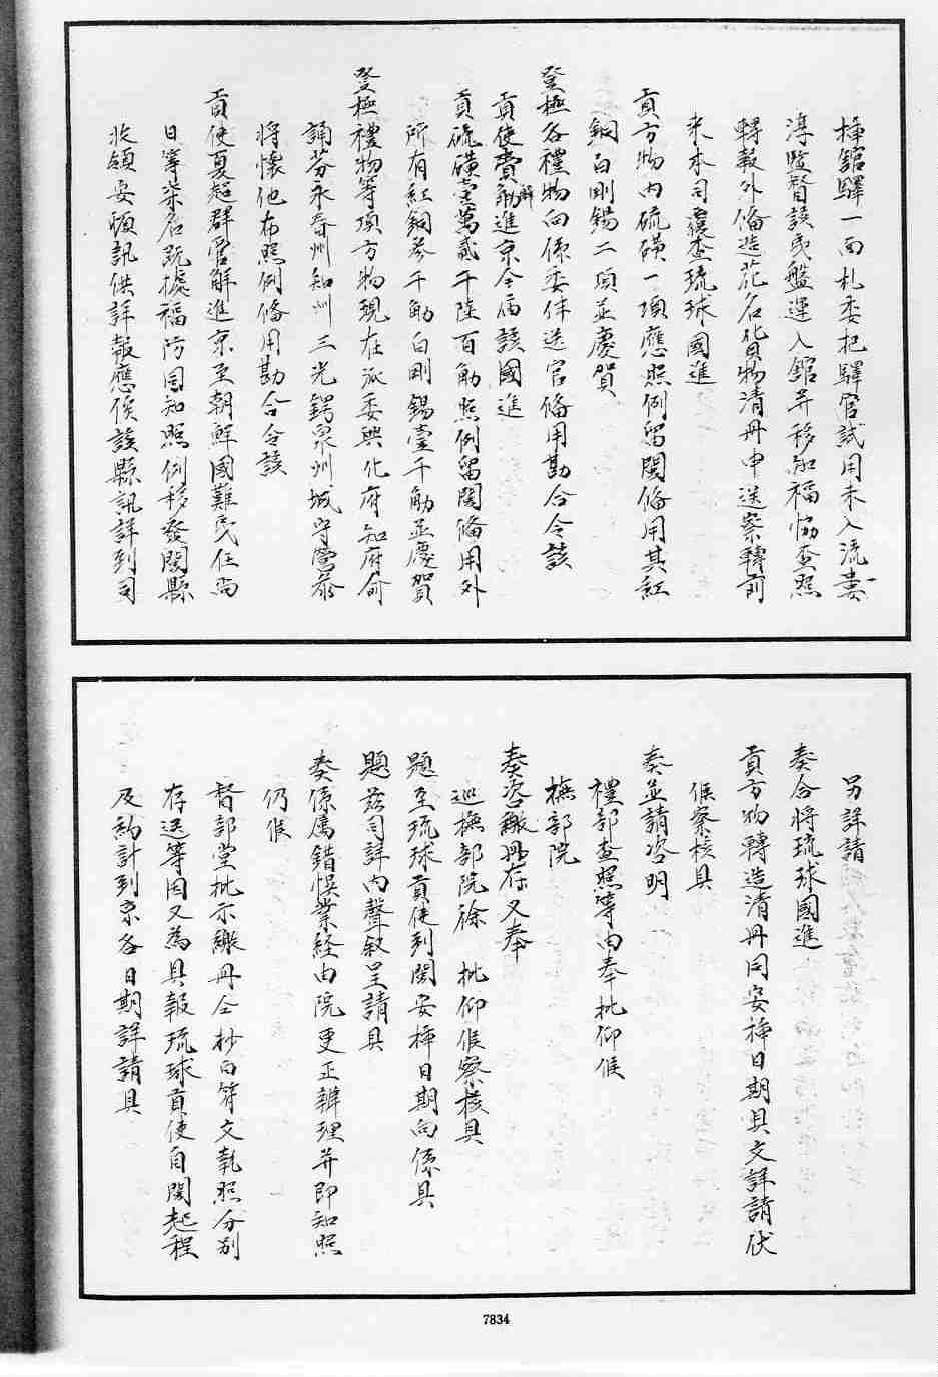 插舘驛一面札委把驛官試用未入流婁
淳監督該民盤運入舘并移知福協查照
轉報外俻造花名貨物清冊申送察轉前
來本司覆查琉球國進
貢方物內硫磺一項應照例留閩俻用其紅
銅白剛錫二項並慶賀
登極各禮物向係委伴送官俻用勘合令該
貢使賫觧進京今届該國進
貢硫磺壹萬貳千陸百觔照例留閩俻用外
所有紅銅叁千觔白剛錫壹千觔並慶賀
登極禮物等項方物現在派委興化府知府俞
誦芬永春州知州三光鍔泉州城守營叅
將懷他布照例俻用勘合令該
貢使夏超群管解進京至朝鮮國難民任尚
日等柒名既據福防同知照例移發閩縣
收領安頓訊供詳報應俟該縣訊詳到司
另詳請
奏合將琉球國進
貢方物轉造清冊同安插日期具文詳請伏
候察核具
奏並請咨明
禮部查照等由奉批仰候
撫部院
奏咨繳冊存又奉
巡撫部院徐 批仰候察核具
題至琉球貢使到閩安插日期向係具
題茲司詳內聲叙呈請具
奏係属錯悞業経由院更正辦理并即知照
仍候
督部堂批示繳冊仝抄白符文執照分別
存送等因又為具報琉球貢使自閩起程
及約計到京各日期詳請具
7834